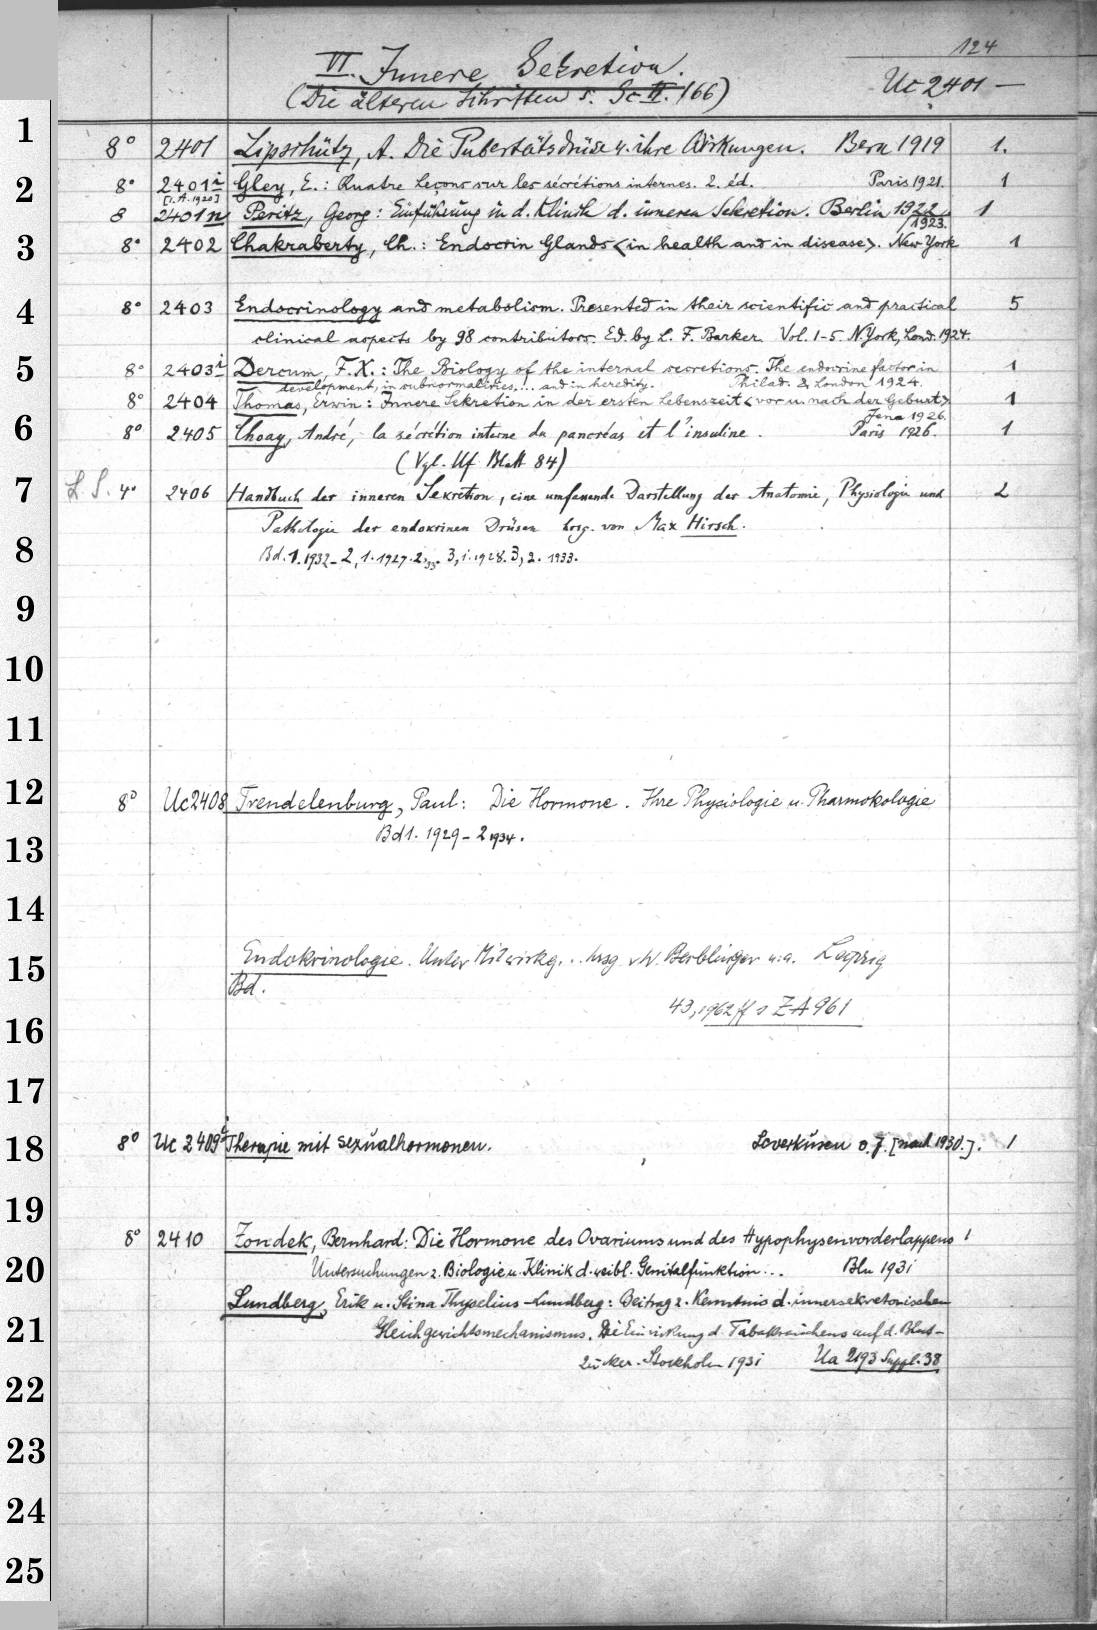 124
VI. Innere Sekretion.
Uc 2401 —
(Die älteren Schriften s. Sc II. 166)
1
8° 2401 Lipschütz, A. Die Pubertätsdrüse u. ihre Wirkungen. Bern 1919 1.
2
8° 2401i Gley, E.: Quatre leçons sur les sécrétions internes. 2. éd. Paris 1921. 1
[i. A. 1920]
8 2401n Peritz, Georg: Einführung in d. Klinik d. inneren Sekretion. Berlin 1922 1
1923.
3
8° 2402 Chakraberty, Ch.: Endocrin Glands <in health and in disease>. New York 1
4
8° 2403 Endocrinology and metabolism. Presented in their scientific and practical 5
clinical aspects by 98 contributors. Ed. by L. F. Barker. Vol. 1-5. N. York, Lond. 1924.
5
8° 2403i Dercum, F. X.: The Biology of the internal secretions. The endocrine factor in 1
development, in subnormalities ... and in heredity. Philad. & London 1924.
8° 2404 Thomas, Erwin: Innere Sekretion in der ersten Lebenszeit <vor u. nach der Geburt> 1
Jena 1926.
6
8° 2405 Choay, André, la sécrétion interne du pancréas et l'insuline. Paris 1926. 1
(Vgl. Uf Blatt 84)
7
L. S. 4° 2406 Handbuch der inneren Sekretion, eine umfassende Darstellung der Anatomie, Physiologie und 2
Pathologie der endokrinen Drüsen hrsg. von Max Hirsch.
8
Bd. 1. 1932 - 2, 1. 1927. 2, 33. 3, 1. 1928. 3, 2. 1933.
9
10
11
12
8° Uc2408 Trendelenburg, Paul: Die Hormone. Ihre Physiologie u. Pharmokologie
Bd 1. 1929 - 2 1934.
13
14
15
Endokrinologie. Unter Mitwirkg. .. hrsg v W. Berblinger u. a. Leipzig
Bd.
43, 1962 ff s ZA 961
16
17
18
8° Uc 2409i Therapie mit Sexualhormonen. Leverkusen o. J. [nach 1930.]. 1
19
8° 2410 Zondek, Bernhard: Die Hormone des Ovariums und des Hypophysenvorderlappens 1
20
Untersuchungen z. Biologie u. Klinik d. weibl. Genitalfunktion ... Bln 1931
Lundberg, Erik u. Stina Thyselius-Lundberg: Beitrag z. Kenntnis d. innersekretorischen
21
Gleichgewichtsmechanismus. Die Einwirkung d. Tabakrauchens auf d. Blut-
zucker. Stockholm 1931 Ua 2193 Suppl. 38
22
23
24
25